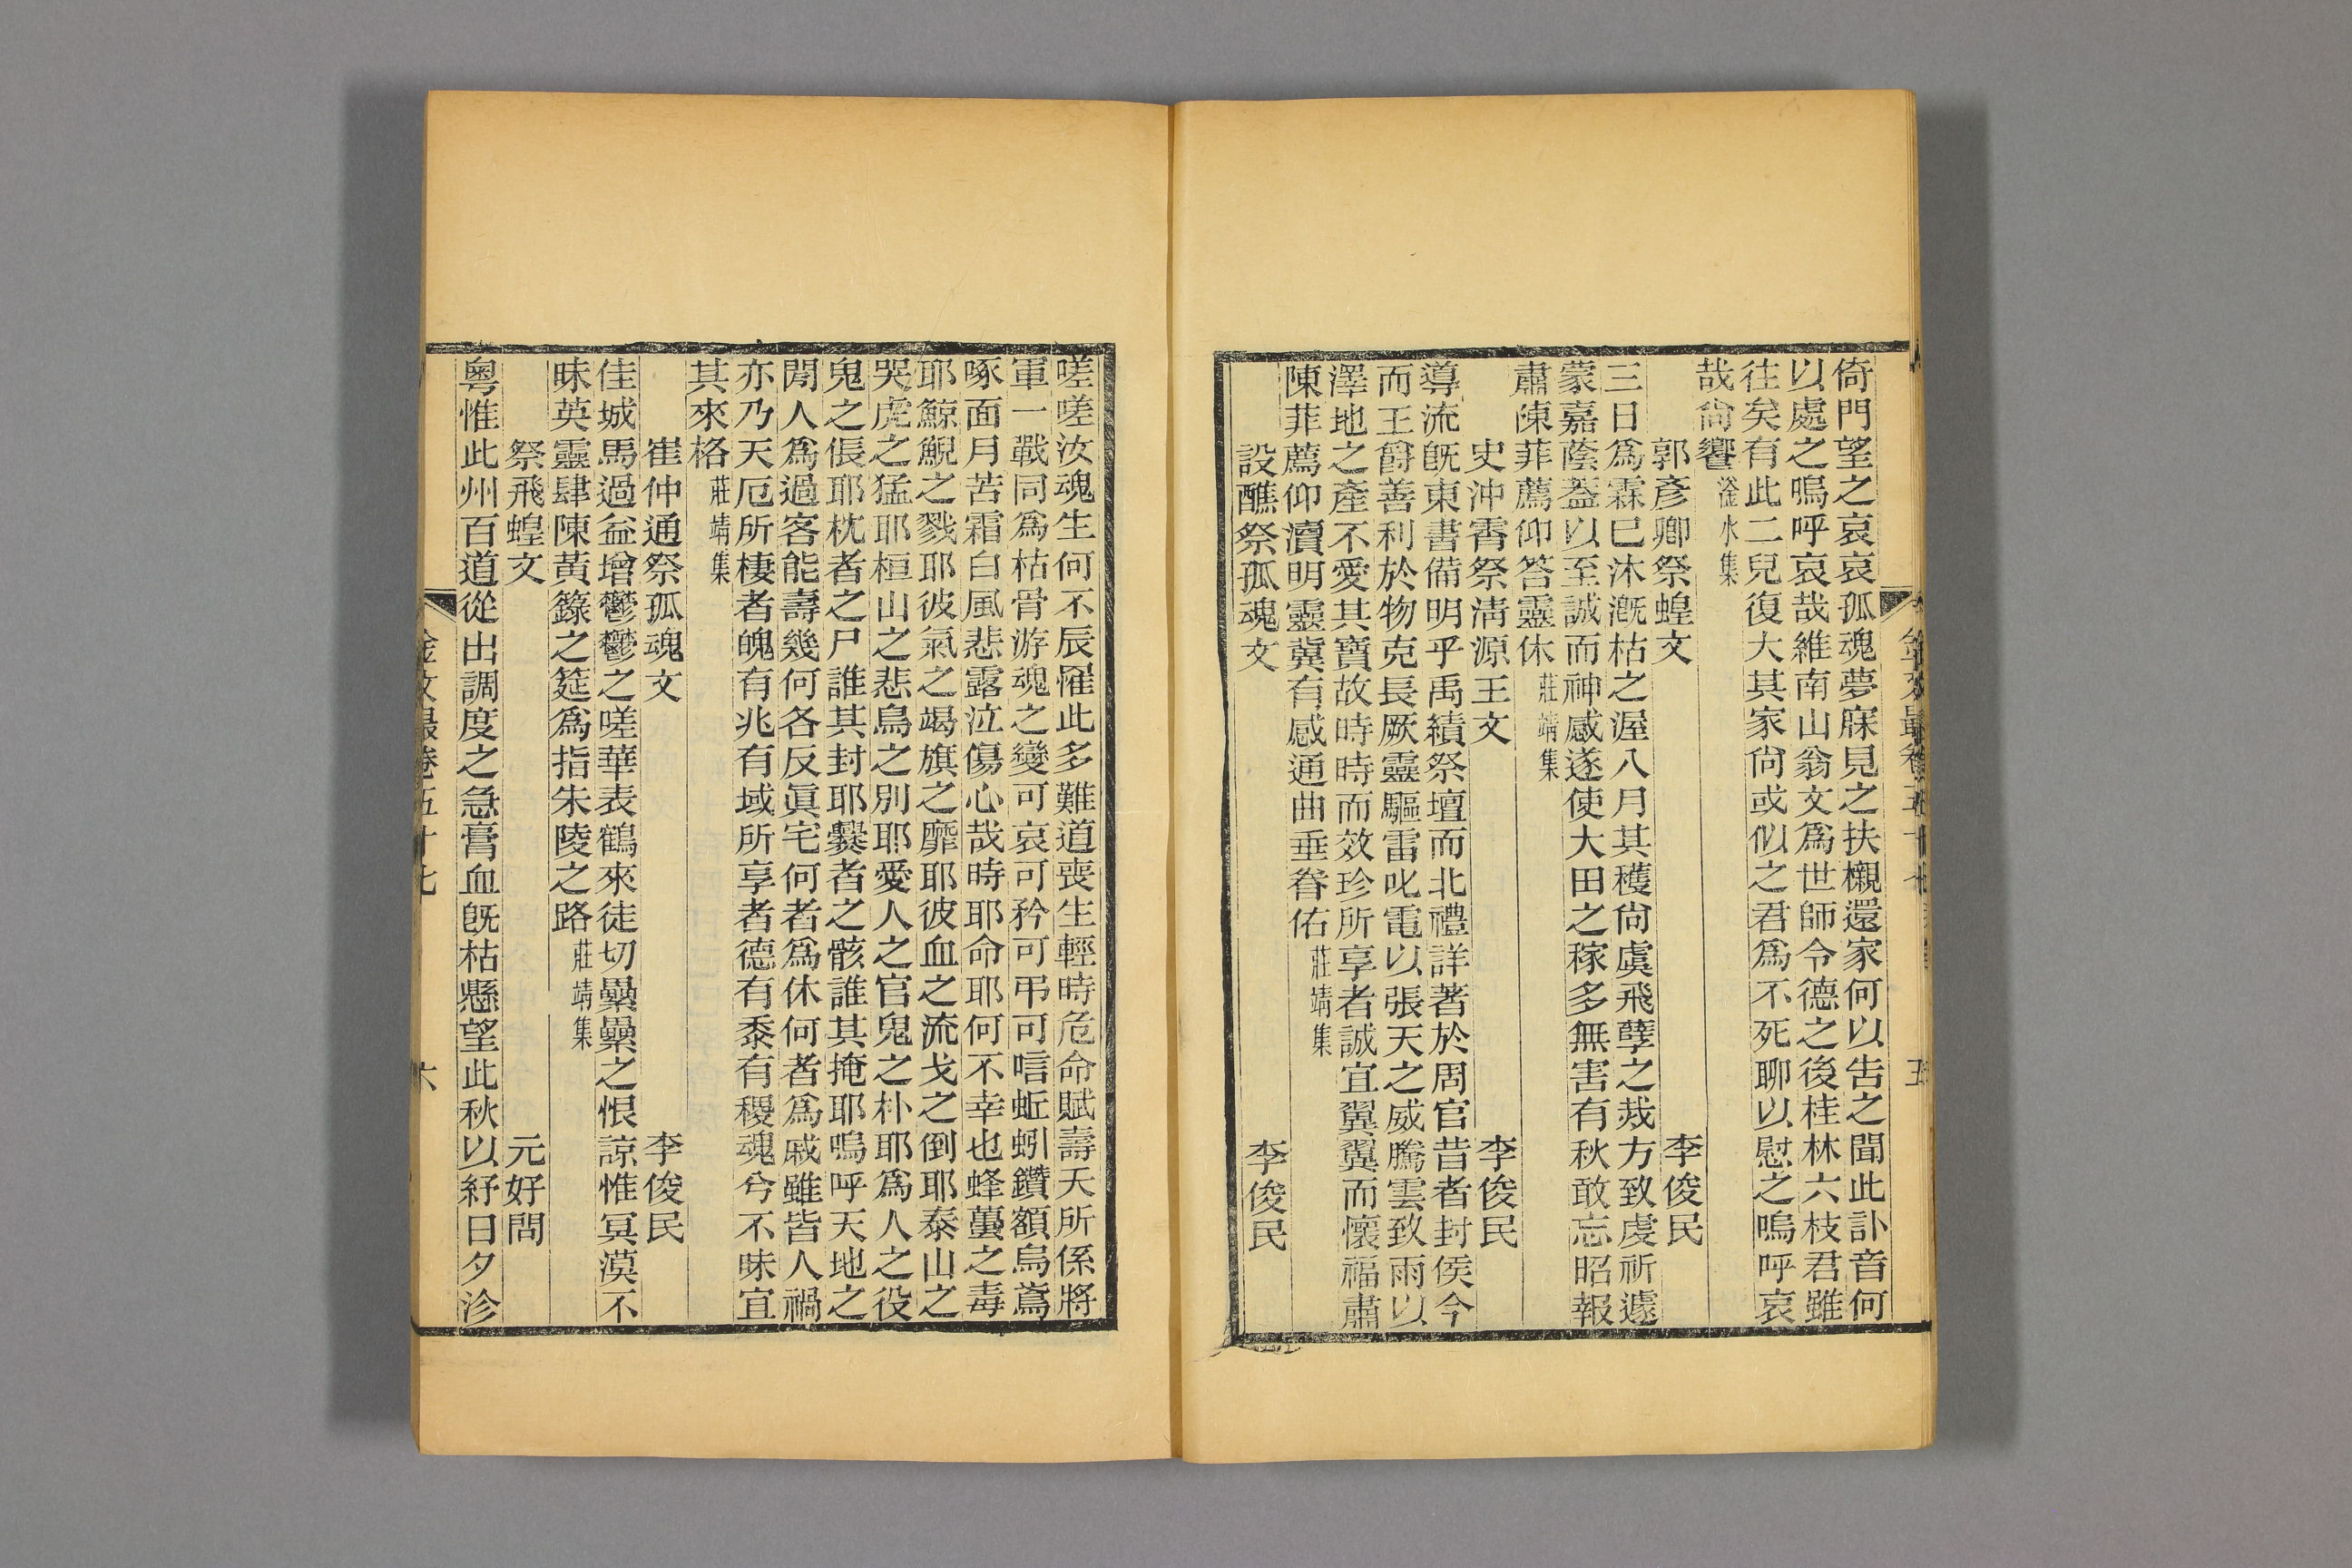 倚門望之哀哀孤魂夢寐見之扶櫬還家何以告之聞此訃音何
以處之嗚呼哀哉維南山翁文為世師令德之後桂林六枝君雖
往矣有此二兒復大其家尙或似之君為不死聊以慰之嗚呼哀
哉尙饗滏水集
郭彥卿祭蝗文 李俊民
三日為霖巳沐漑枯之渥八月其穫尙虞飛孽之烖方致虔祈遽
蒙嘉蔭葢以至誠而神感遂使大田之稼多無害有秋敢忘昭報
肅陳菲薦仰答靈休莊靖集
史沖霄祭淸源王文 李俊民
導流旣東書備明乎禹績祭壇而北禮詳著於周官昔者封侯今
而王爵善利於物克長厥靈驅雷叱電以張天之威騰雲致雨以
澤地之產不愛其寶故時時而效珍所享者誠宜翼翼而懷福肅
陳菲薦仰瀆明靈冀有感通曲垂眷佑莊靖集
設醮祭孤魂文 李俊民
嗟嗟汝魂生何不辰罹此多難道喪生輕時危命賦壽夭所係將
軍一戰同為枯骨游魂之變可哀可矜可弔可唁蚯蚓鑽額烏鳶
啄面月苦霜白風悲露泣傷心哉時耶命耶何不幸也蜂蠆之毒
耶鯨鯢之戮耶彼氣之竭旗之靡耶彼血之流戈之倒耶泰山之
哭虎之猛耶桓山之悲鳥之別耶愛人之官鬼之朴耶為人之役
鬼之倀耶枕者之尸誰其封耶爨者之骸誰其掩耶嗚呼天地之
閒人為過客能壽幾何各反眞宅何者為休何者為戚雖皆人禍
亦乃天厄所棲者魄有兆有域所享者德有黍有稷魂兮不昧宜
其來格莊靖集
崔仲通祭孤魂文 李俊民
佳城馬過益增鬱鬱之嗟華表鶴來徒切纍纍之恨諒惟冥漠不
昧英靈肆陳黃籙之筵為指朱陵之路莊靖集
祭飛蝗文 元好問
粵惟此州百道從出調度之急膏血旣枯懸望此秋以紓日夕沴
金文最卷五十七 六